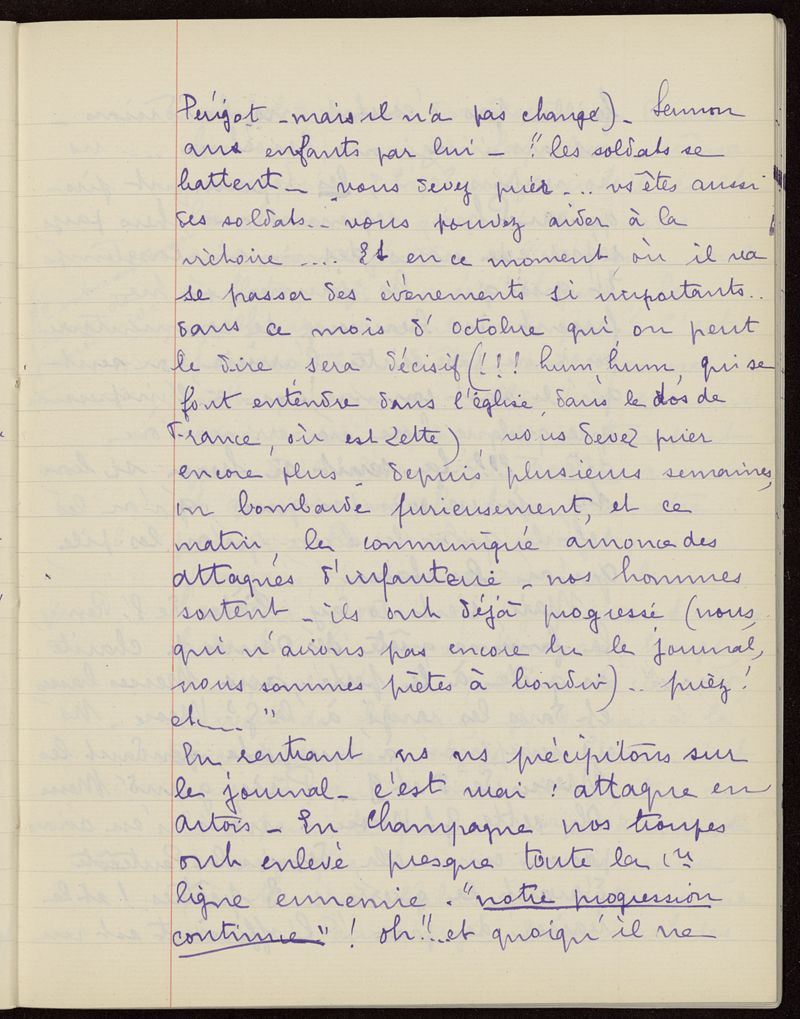 Périgot - mais il n'a pas changé) - Sermon
aux enfants par lui - "les soldats se
battent - vous devez prier ... vs êtes aussi
des soldats.. vous pouvez aider à la
victoire .... Et en ce moment où il va
se passer des évènements si importants..
dans ce mois d'octobre qui, on peut
le dire sera décisif (!!! hum, hum, qui se
font entendre dans l'église, dans le dos de
France, où est Zette) vous devez prier
encore plus - depuis plusieurs semaines,
on bombarde furieusement, et ce
matin, le communiqué annonce des
attaques d'infanterie - nos hommes
sortent - ils ont déjà progressé (nous
qui n'avions pas encore lu le journal,
nous sommes prêtes à bondir) .. priez!
etc...."
En rentrant ns ns précipitons sur
le journal - c'est vrai! attaque en
Artois - En Champagne nos troupes
ont enlevé presque toute la 1re
ligne ennemie. "notre progression
continue"! oh!!..et quoiqu'il ne